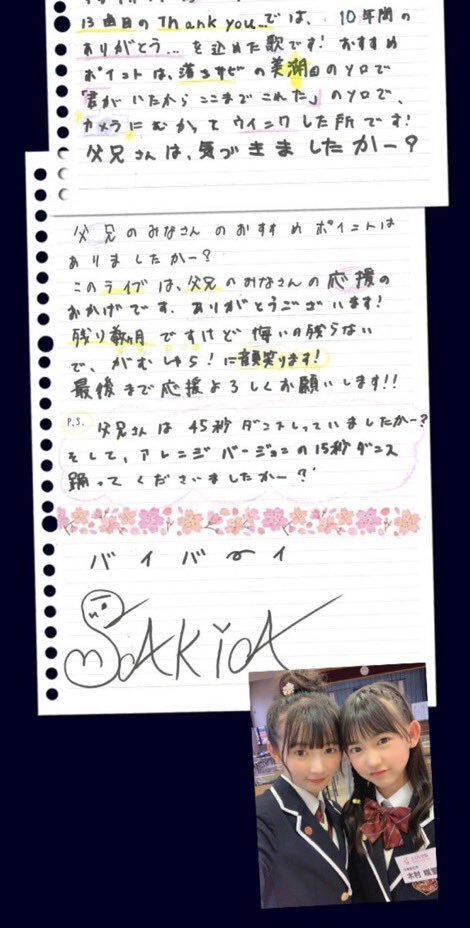 13曲目の Thank you...では、10年間の
ありがとう...を込めた歌です！おすすめ
ポイントは、落ちサビの美湖のソロで
「君がいたから ここまでこれた」のソロで、
カメラにむかってウインクした所です！
父兄さんは、気づきましたかー？
父兄のみなさんのおすすめポイントは
ありましたかー？
このライブは、父兄のみなさんの応援の
おかげです。ありがとうございます！
残り数ヶ月ですけど悔いの残らない
で、がむしゃら！に顔笑ります！
最後まで応援よろしくお願いします!!
P.S. 父兄さんは 45秒ダンスしっていましたかー？
そして、アレンジバージョンの15秒ダンス
踊ってくださいましたかー？
バイバーイ
SAKIA
木村 咲